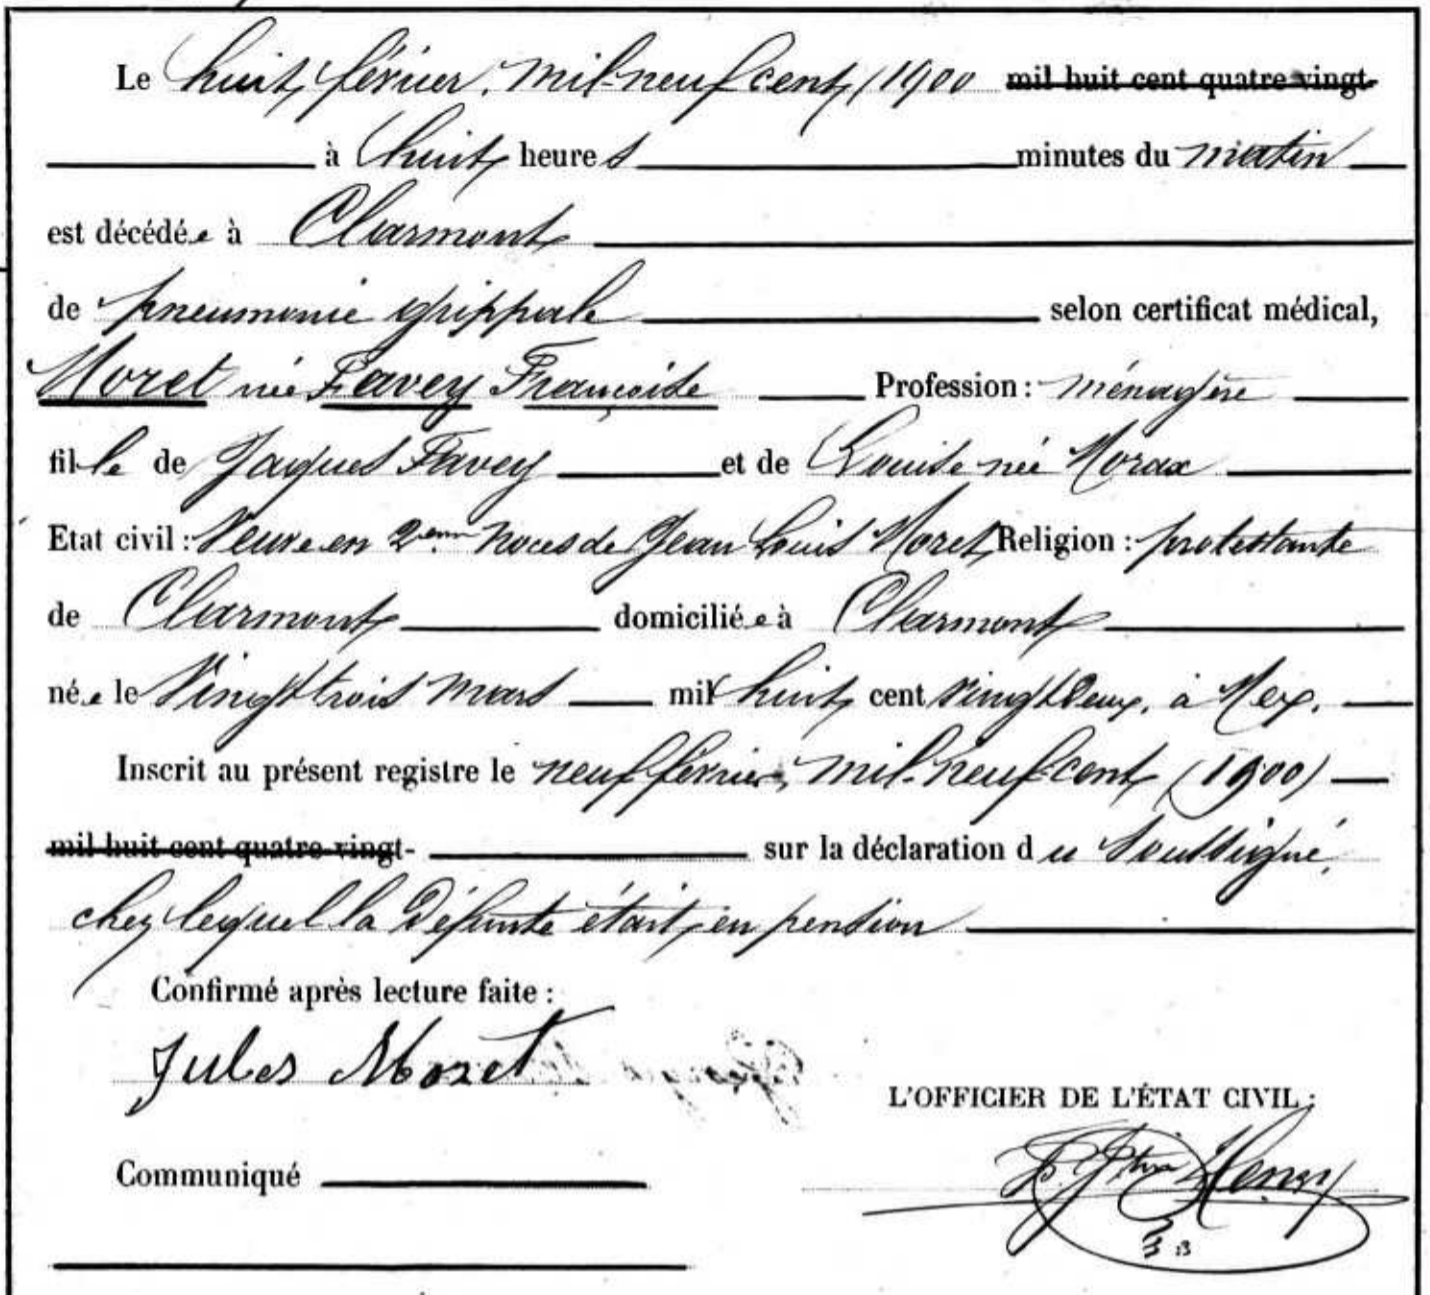 Le huit février, mil-neuf cent (1900 mil huit cent quatre vingt-
à huit heures minutes du matin
est décédée à Clarmont
de pneumonie grippale selon certificat médical,
Moret née Favey Françoise Profession : ménagère
fille de Jaques Favey et de Louise née Morax
Etat civil : Veuve en 2ème noces de Jean Louis Moret Religion : protestante
de Clarmont domiciliée à Clarmont
née le Vingt trois mars mil huit cent vingt deux, à Mex.
Inscrit au présent registre le neuf février, mil-neuf-cent (1900)
mil huit cent quatre vingt- sur la déclaration du Soussigné,
chez lequel la Défunte était en pension
Confirmé après lecture faite :
Jules Moret
L'OFFICIER DE L'ÉTAT CIVIL :
Henry
Communiqué